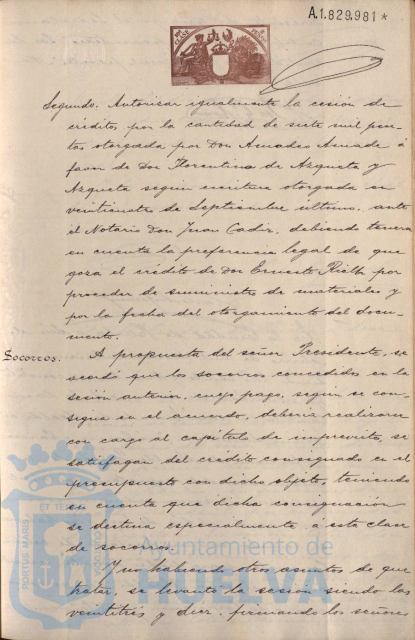 A.1.829.981*
Segundo. Autorizar igualmente la cesión de
créditos, por la cantidad de siete mil pese-
tas otorgada por Don Amadeo Amade á
favor de Don Florentino de Azqueta y
Azqueta según escritura otorgada en
veintinueve de Septiembre último, ante
el Notario Don Juan Cádiz, debiendo tenerse
en cuenta la preferencia legal de que
goza el crédito de Don Ernesto Rielta por
proceder de suministro de materiales y
por la fecha del otorgamiento del docu-
mento.
Socorros. A propuesta del señor Presidente, se
acordó que los socorros concedidos en la
sesión anterior, cuyo pago, según se con-
signa en el acuerdo, debería realizarse
con cargo al capítulo de imprevistos, se
satisfagan del crédito consignado en el
presupuesto con dicho objeto, teniendo
en cuenta que dicha consignación
se destina especialmente á esta clase
de socorros.
Y no habiendo otros asuntos de que
tratar, se levantó la sesión siendo las
veintitrés y diez, firmando los señores
PORTUS MARIS ET TERRAE
Ayuntamiento de
HUELVA